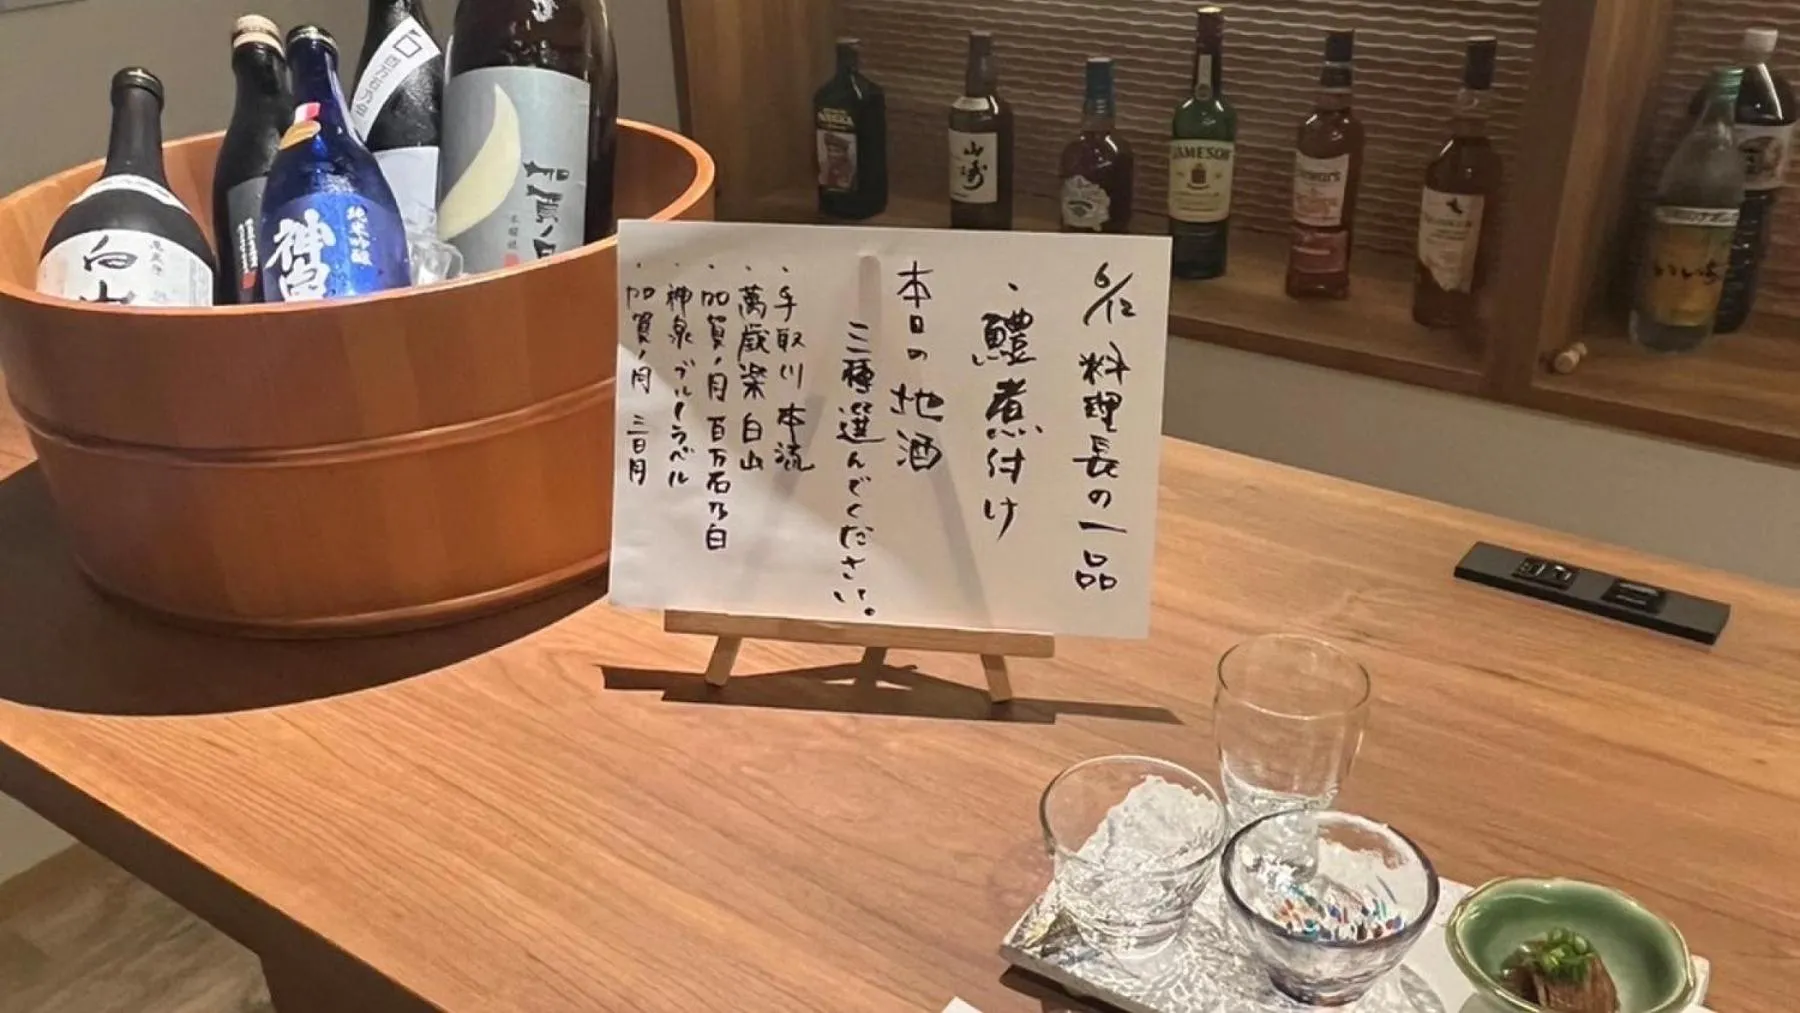 6/12 料理長の一品
・鱧煮付け
本日の地酒
三種選んでください。
・手取川 本流
・萬歳楽 白山
・加賀ノ月 百万石乃白
・神泉 ブルーラベル
・加賀ノ月 三日月
白山
純米吟醸
神泉
加賀ノ月
山崎
JAMESON
いいちこ